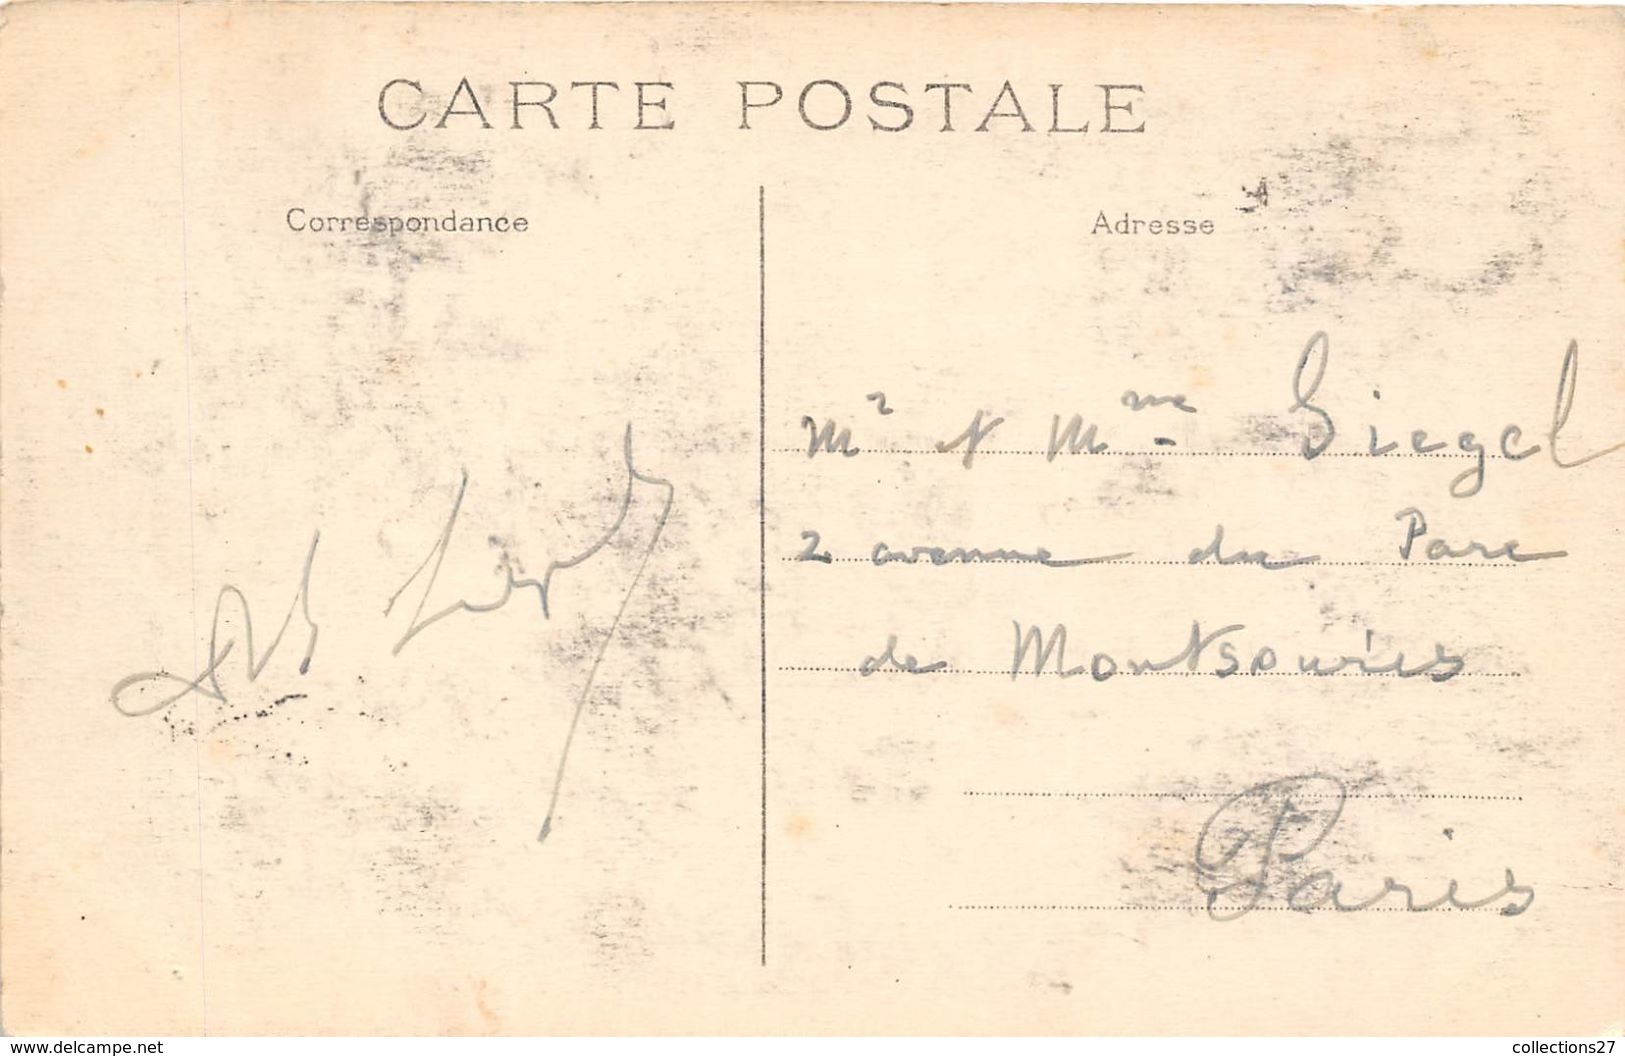 CARTE POSTALE
Correspondance
Adresse
Mr et Mme Siegel
2 avenue du Parc
de Montsouris
Paris
www.delcampe.net
collections27